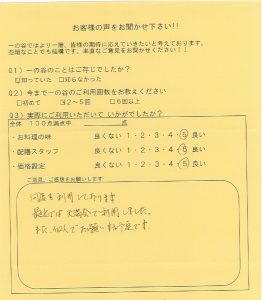 お客様の声をお聞かせ下さい!!
一の谷ではより一層、皆様の期待に応えていきたいと考えております。
些細なことでも結構です。率直なご意見をお聞かせください!!
Q1) 一の谷のことはご存じでしたか?
☑知っていた □知らなかった
Q2) 今まで一の谷のご利用回数をお教えください
□初めて ☑2~5回 □6回以上
Q3) 実際にご利用いただいて いかがでしたか?
全体 100点満点中 点
・お料理の味 良くない 1・2・3・4・5 良い
・配膳スタッフ 良くない 1・2・3・4・5 良い
・価格設定 良くない 1・2・3・4・5 良い
ご意見、ご感想をお願いします
何度も利用しております
最近では 会で利用しました。
また、 お願いする予定です。